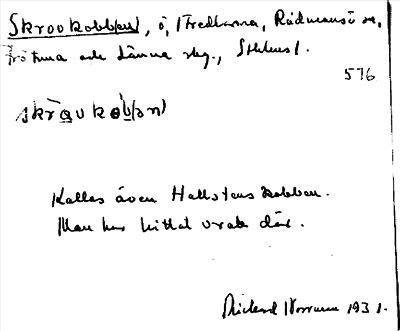 Skrovkobben, ö, Fredkarna, Rådmansö sn,
Frötuna och Länna skg., Sthlms l.
576
skrò̱vkòb̥ən
Kallas även Hallstens kobben.
Man har hittat vrak där.
Rickard Norrman 1931.